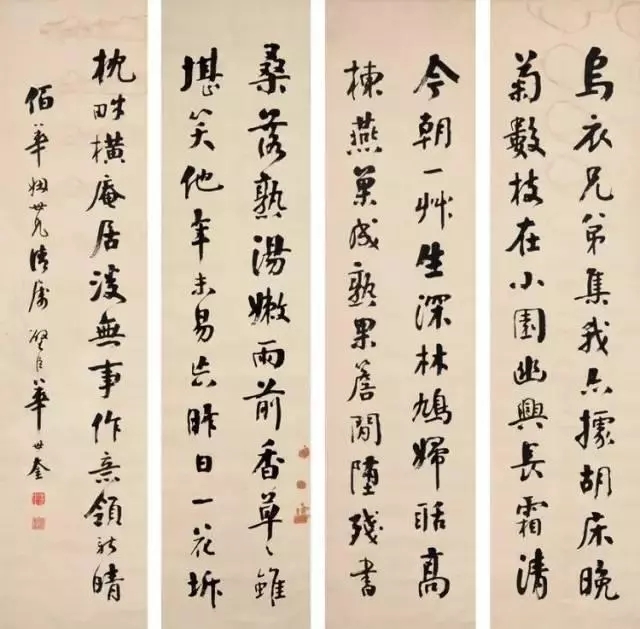 烏衣兄弟集我亦據胡床晚
菊數枝在小園幽興長霜清
桑落熟湯嫩雨前香草〻雖
堪笑他年未易忘昨日一花坼
今朝一艸生深林鳩婦聒高
棟燕巢成熟果簷間墮殘書
枕畔橫庵居復無事作意領新晴
佰華姻世兄清屬 璧臣華世奎